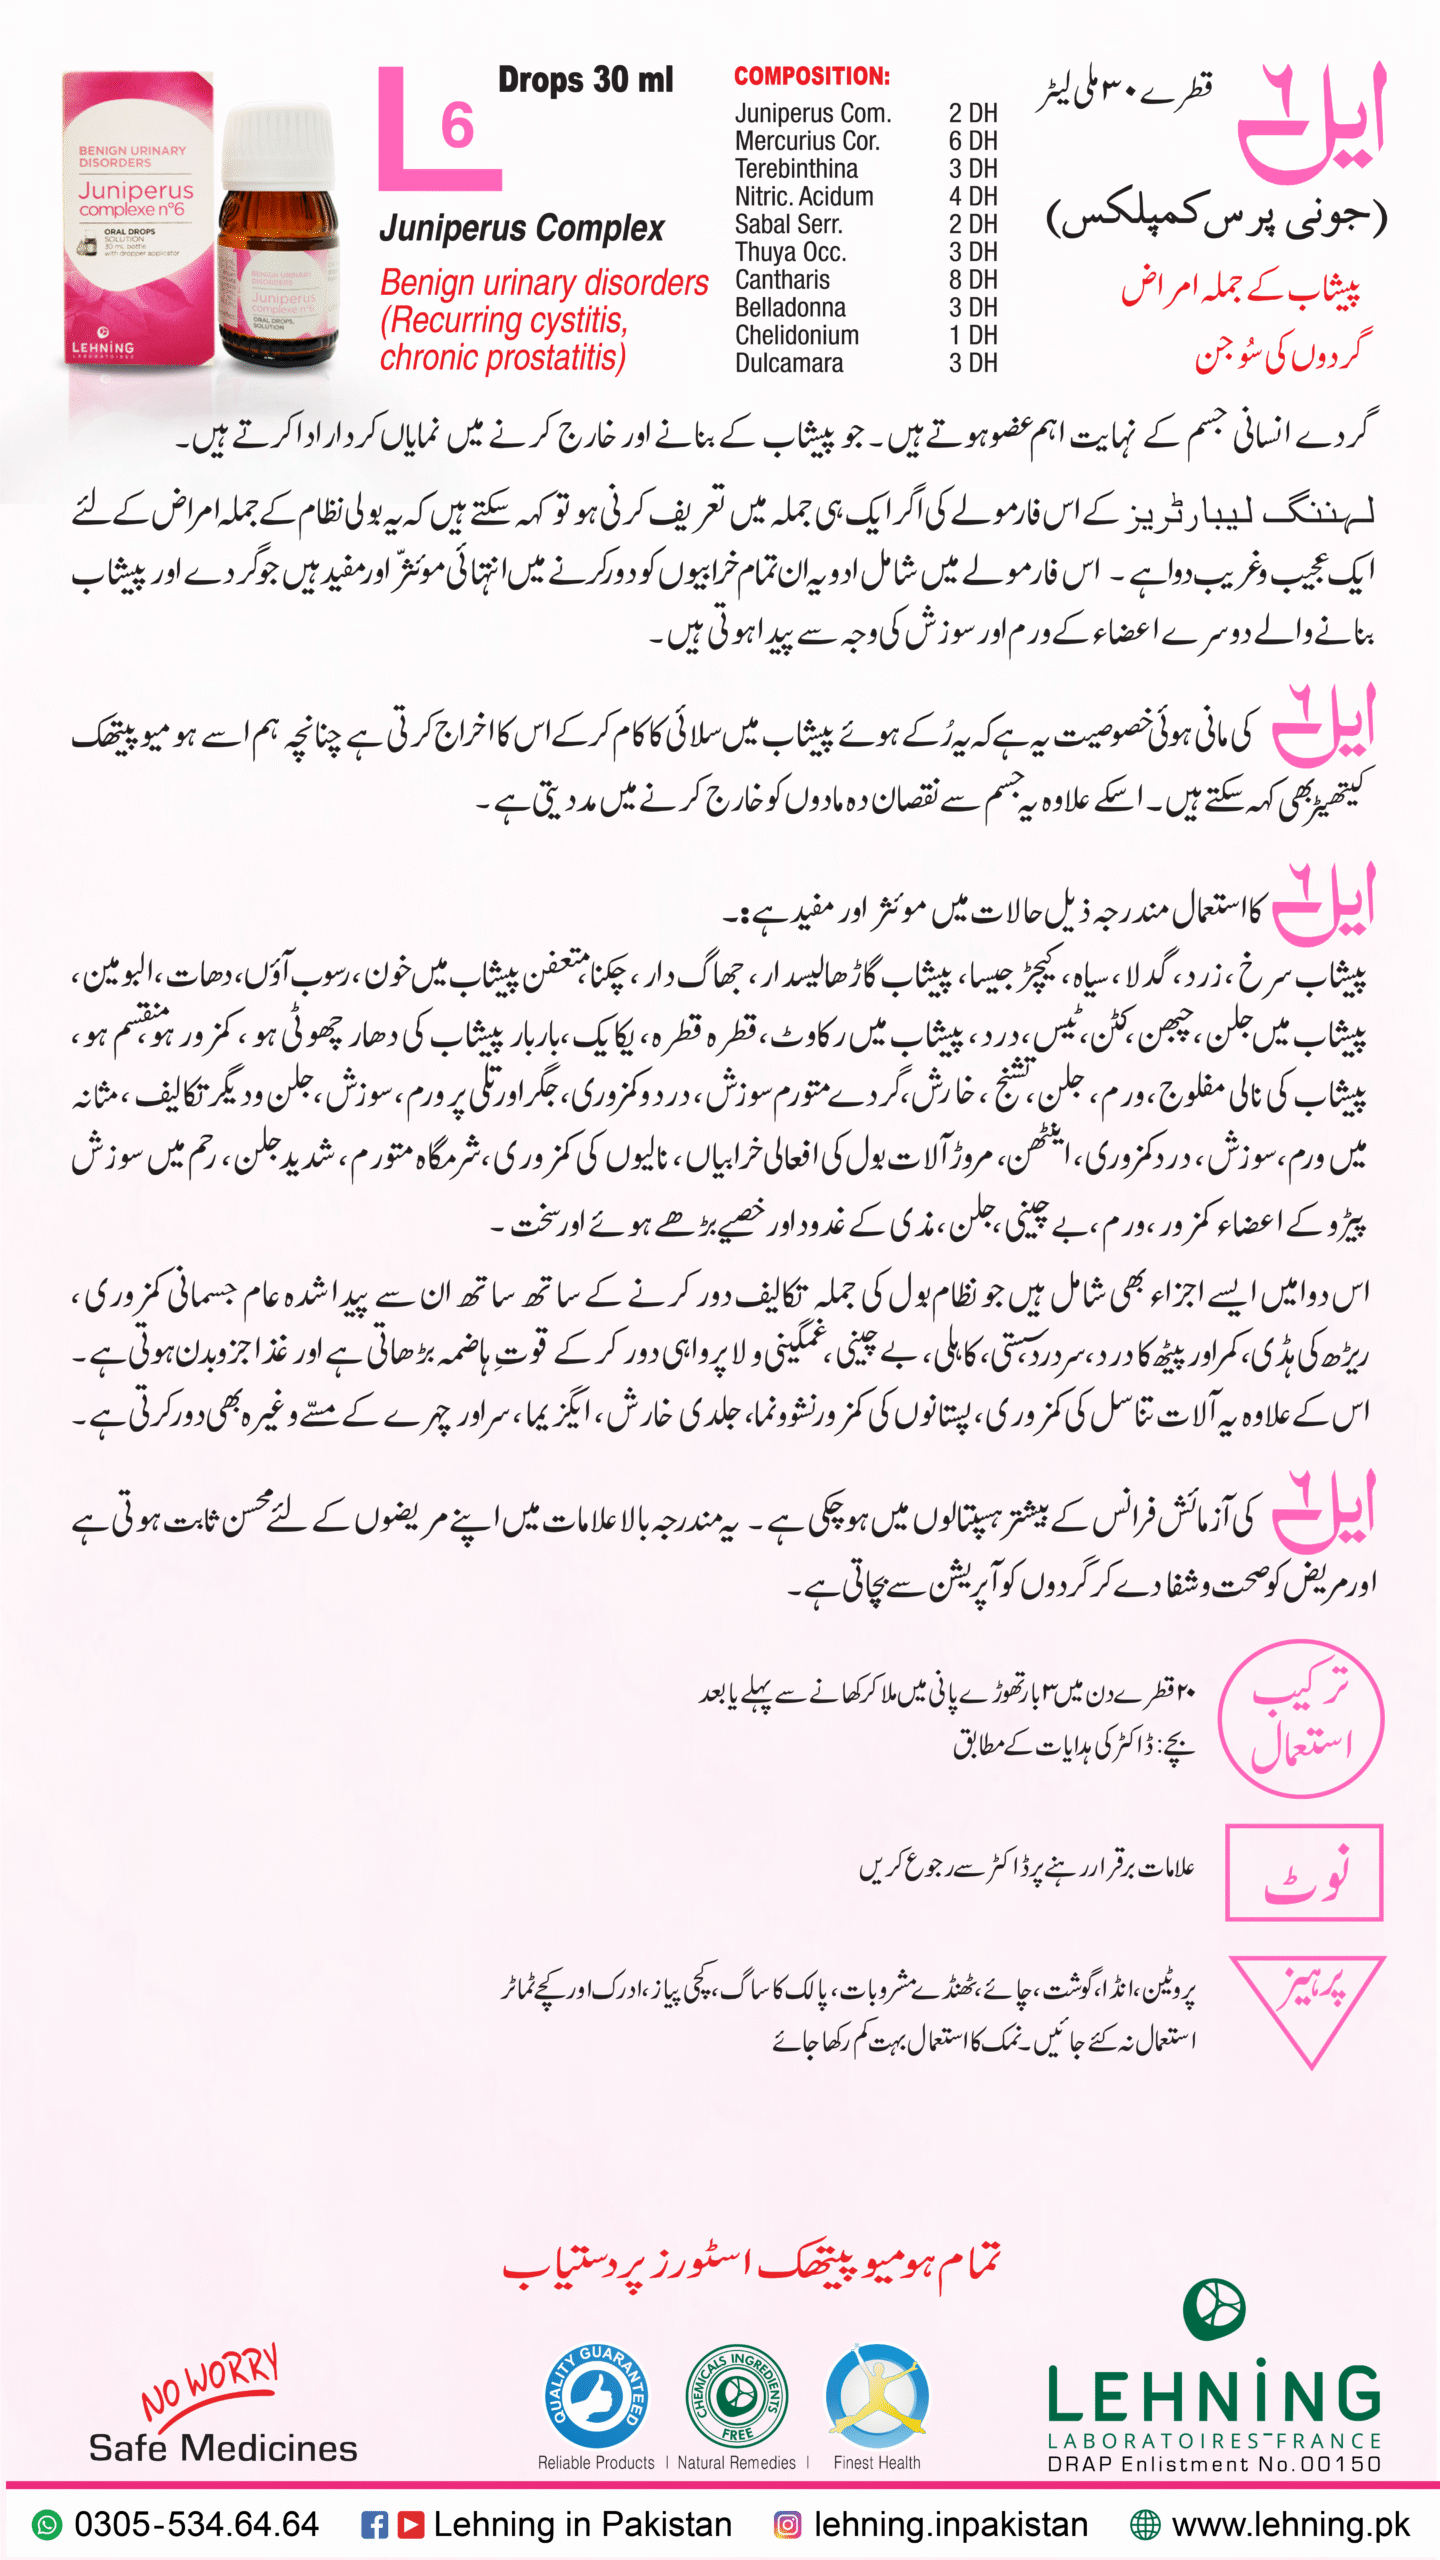 BENIGN URINARY
DISORDERS
Juniperus
complexe n°6
ORAL DROPS
SOLUTION
30 mL bottle
with dropper applicator
LEHNING
LABORATOIRES
BENIGN URINARY
DISORDERS
Juniperus
complexe n°6
ORAL DROPS,
SOLUTION
L 6
Drops 30 ml
Juniperus Complex
Benign urinary disorders
(Recurring cystitis,
chronic prostatitis)
COMPOSITION:
Juniperus Com. 2 DH
Mercurius Cor. 6 DH
Terebinthina 3 DH
Nitric. Acidum 4 DH
Sabal Serr. 2 DH
Thuya Occ. 3 DH
Cantharis 8 DH
Belladonna 3 DH
Chelidonium 1 DH
Dulcamara 3 DH
ایل ۶
قطرے ۳۰ ملی لیٹر
(جونی پرس کمپلکس)
پیشاب کے جملہ امراض
گردوں کی سُوجن
گردے انسانی جسم کے نہایت اہم عضو ہوتے ہیں۔ جو پیشاب کے بنانے اور خارج کرنے میں نمایاں کردار ادا کرتے ہیں۔
لہننگ لیبارٹریز کے اس فارمولے کی اگر ایک ہی جملہ میں تعریف کرنی ہو تو کہہ سکتے ہیں کہ یہ بولی نظام کے جملہ امراض کے لئے
ایک عجیب و غریب دوا ہے ۔ اس فارمولے میں شامل ادویہ ان تمام خرابیوں کو دور کرنے میں انتہائی موئثّر اور مفید ہیں جو گردے اور پیشاب
بنانے والے دوسرے اعضاء کے ورم اور سوزش کی وجہ سے پیدا ہوتی ہیں۔
ایل ۶ کی مانی ہوئی خصوصیت یہ ہے کہ یہ رُکے ہوئے پیشاب میں سلائی کا کام کر کے اس کا اخراج کرتی ہے چنانچہ ہم اسے ہومیو پیتھک
کیتھیڑ بھی کہہ سکتے ہیں۔ اسکے علاوہ یہ جسم سے نقصان دہ مادوں کو خارج کرنے میں مدد دیتی ہے ۔
ایل ۶ کا استعمال مندرجہ ذیل حالات میں موئثر اور مفید ہے:۔
پیشاب سرخ ، زرد، گدلا ، سیاہ، کیچڑ جیسا، پیشاب گاڑھا لیسدار ، جھاگ دار ، چکنا، متعفن پیشاب میں خون، رسوب آؤں، دھات، البومین،
پیشاب میں جلن، چبھن، کٹن، ٹیس، درد، پیشاب میں رکاوٹ، قطرہ قطرہ، یکایک، باربار پیشاب کی دھار چھوٹی ہو ، کمزور ہو، منقسم ہو،
پیشاب کی نالی مفلوج، ورم، جلن، تشنج ، خارش، گردے متورم سوزش، درد و کمزوری، جگر اور تلی پر ورم، سوزش، جلن و دیگر تکالیف ، مثانہ
میں ورم، سوزش، درد کمزوری، اینٹھن، مروڑ آلات بول کی افعالی خرابیاں، نالیوں کی کمزوری، شرمگاہ متورم، شدید جلن، رحم میں سوزش
پیڑو کے اعضاء کمزور ،ورم، بے چینی، جلن، مذی کے غدود اور خصیے بڑھے ہوئے اور سخت ۔
اس دوا میں ایسے اجزاء بھی شامل ہیں جو نظام بول کی جملہ تکالیف دور کرنے کے ساتھ ساتھ ان سے پیدا شدہ عام جسمانی کمزوری،
ریڑھ کی ہڈی، کمر اور پیٹھ کا درد، سردرد، سستی، کاہلی، بے چینی، غمگینی و لاپرواہی دور کر کے قوتِ ہاضمہ بڑھاتی ہے اور غذا جزو بدن ہوتی ہے۔
اس کے علاوہ یہ آلات تناسل کی کمزوری، پستانوں کی کمزور نشوونما، جلدی خارش، ایگزیما، سر اور چہرے کے مسّے وغیرہ بھی دور کرتی ہے۔
ایل ۶ کی آزمائش فرانس کے بیشتر ہسپتالوں میں ہو چکی ہے ۔ یہ مندرجہ بالا علامات میں اپنے مریضوں کے لئے محسن ثابت ہوتی ہے
اور مریض کو صحت و شفا دے کر گردوں کو آپریشن سے بچاتی ہے۔
ترکیب استعمال
۲۰ قطرے دن میں ۳ بار تھوڑے پانی میں ملا کر کھانے سے پہلے یا بعد
بچے: ڈاکٹر کی ہدایات کے مطابق
نوٹ
علامات برقرار رہنے پر ڈاکٹر سے رجوع کریں
پرہیز
پروٹین، انڈا، گوشت، چائے، ٹھنڈے مشروبات، پالک کا ساگ، کچی پیاز، ادرک اور کچے ٹماٹر
استعمال نہ کئے جائیں۔ نمک کا استعمال بہت کم رکھا جائے
تمام ہومیو پیتھک اسٹورز پر دستیاب
NO WORRY
Safe Medicines
QUALITY GUARANTEED
CHEMICALS INGREDIENTS FREE
Reliable Products | Natural Remedies | Finest Health
LEHNING
LABORATOIRES-FRANCE
DRAP Enlistment No.00150
0305-534.64.64
Lehning in Pakistan
lehning.inpakistan
www.lehning.pk